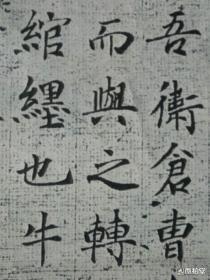 吾衛倉曹
而與之轉
綰纆也牛